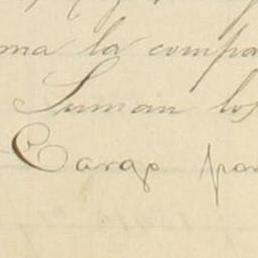 ma la compa
Suman los
Cargo par